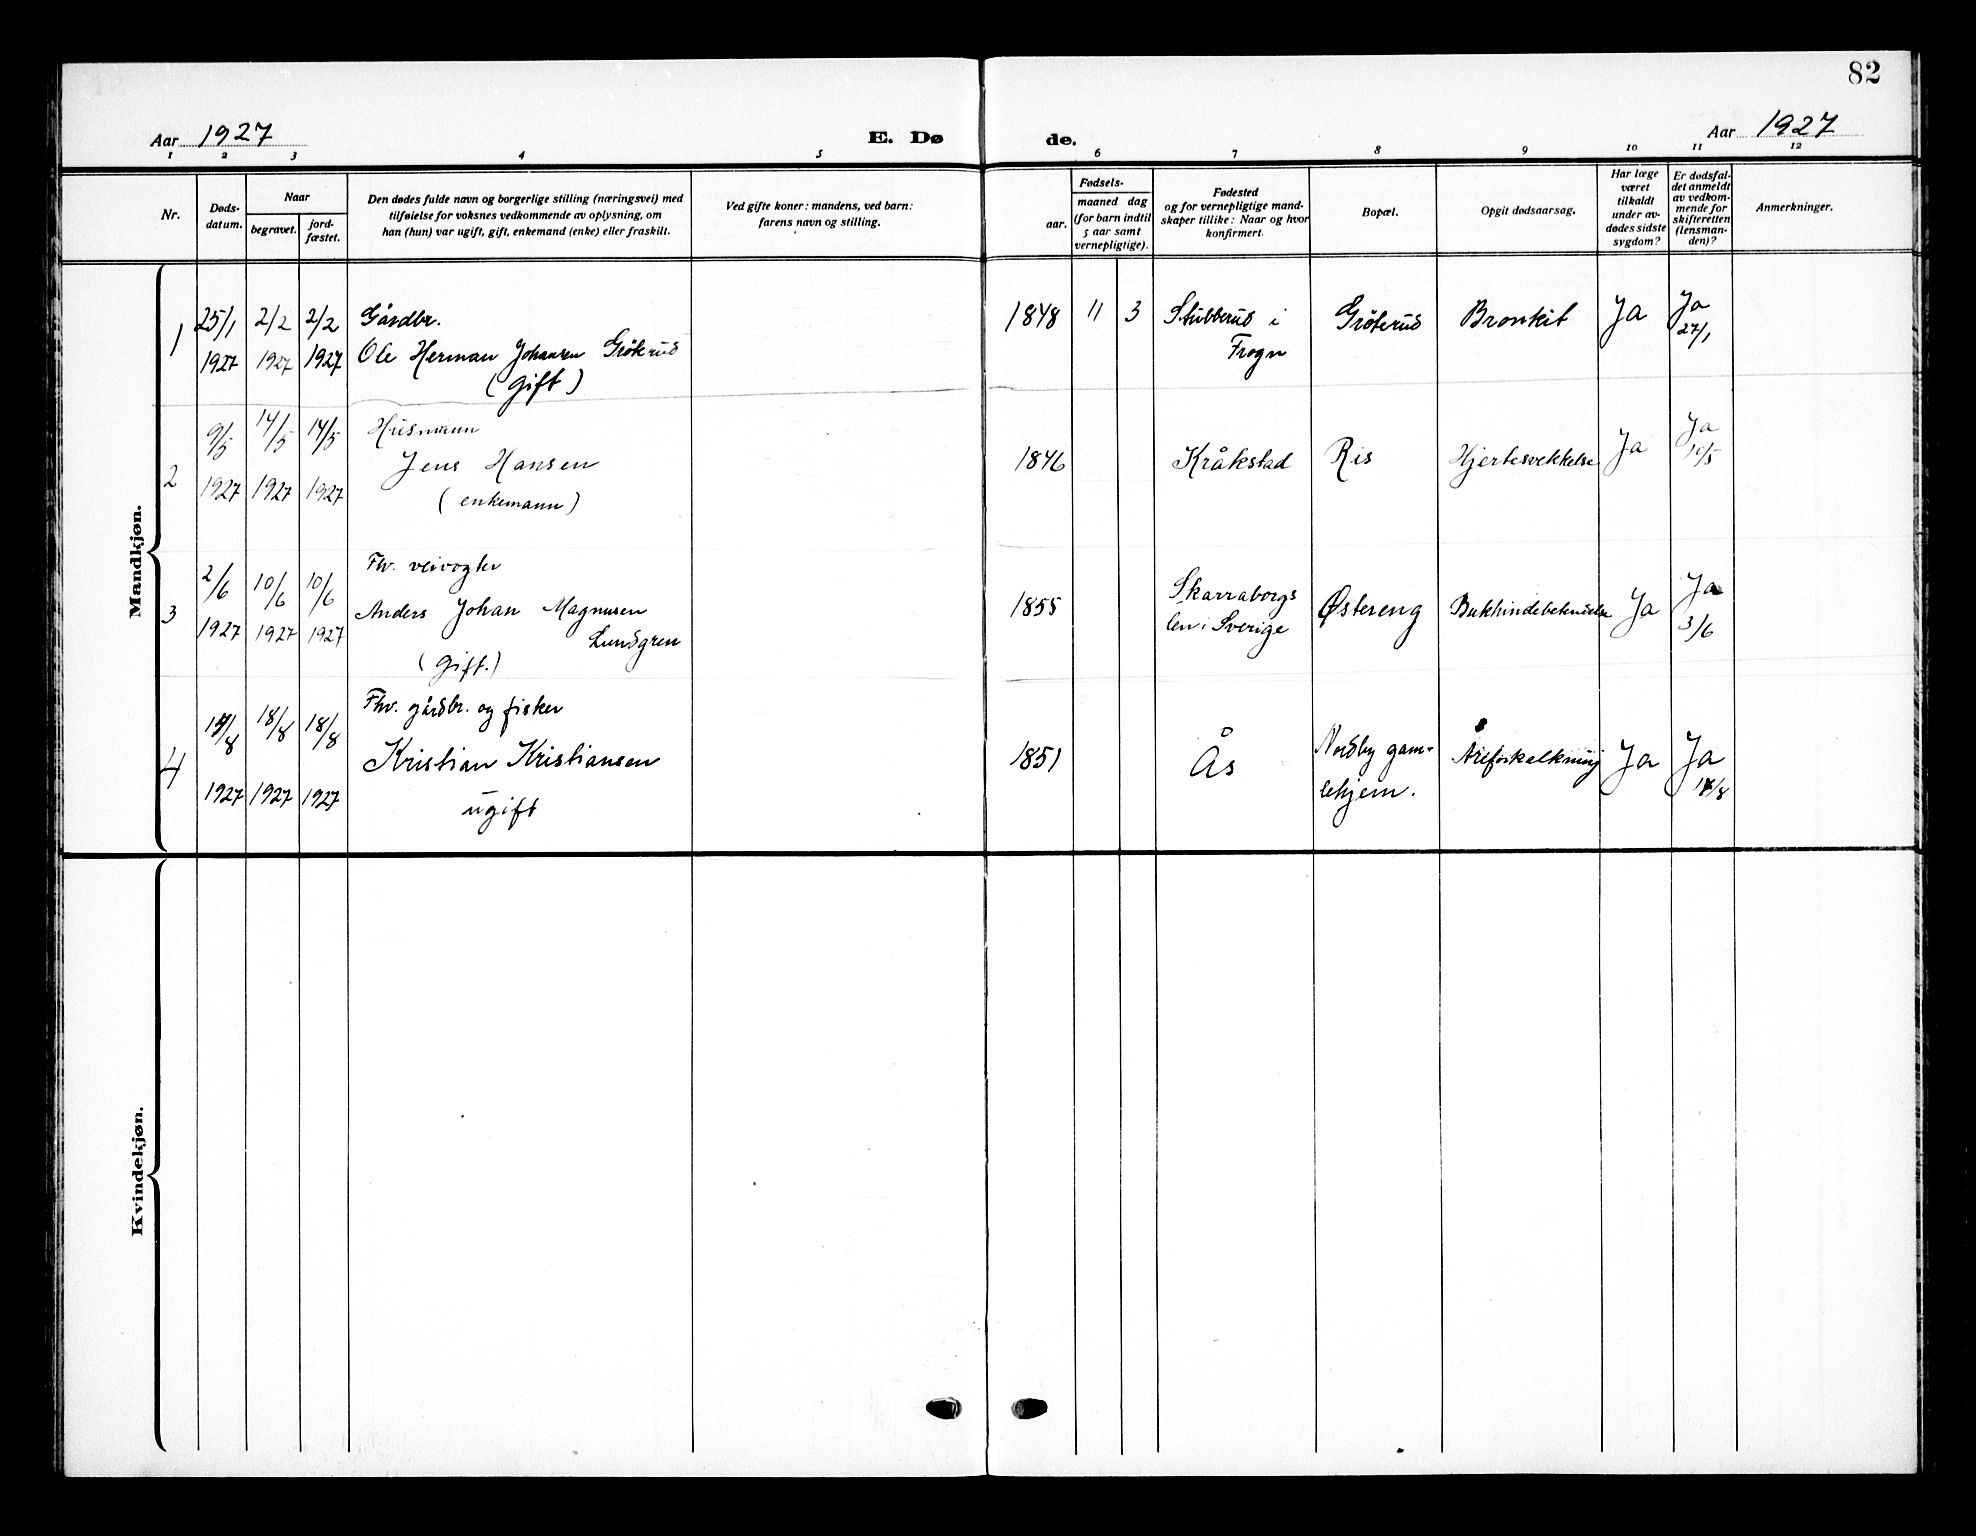 82
Aar 1927
E. Dø
de.
Aar 1927
1 2 3 4 5 6 7 8 9 10 11 12
Nr.
Døds-
datum.
Naar
begravet.
jord-
fæstet.
Den dødes fulde navn og borgerlige stilling (næringsvei) med
tilføielse for voksnes vedkommende av oplysning, om
han (hun) var ugift, gift, enkemand (enke) eller fraskilt.
Ved gifte koner: mandens, ved barn:
farens navn og stilling.
Fødsels-
aar.
maaned dag
(for barn indtil
5 aar samt
vernepligtige).
Fødested
og for vernepligtige mand-
skaper tillike: Naar og hvor
konfirmert.
Bopæl.
Opgit dødsaarsag.
Har læge
været
tilkaldt
under av-
dødes sidste
sygdom?
Er dødsfal-
det anmeldt
av vedkom-
mende for
skifteretten
(lensman-
den)?
Anmerkninger.
Mandkjøn.
1
25/1
1927
2/2
1927
2/2
1927
Gårdbr.
Ole Herman Johansen Grøterud
(gift)
1848 11 3
Stubberud i
Frogn
Grøterud
Bronkit
Ja
Ja
27/1
2
9/5
1927
14/5
1927
14/5
1927
Husmann
Jens Hansen
(enkemann)
1846
Kråkstad
Ris
Hjertesvekkelse
Ja
Ja
10/5
3
2/6
1927
10/6
1927
10/6
1927
Fhv. veivogter
Anders Johan Magnusen
Lundgren
(gift.)
1855
Skarraborgs
len i Sverige
Østereng
Bukhindebetendelse
Ja
Ja
3/6
4
/8
1927
18/8
1927
18/8
1927
Fhv. gårdbr. og fisker
Kristian Kristiansen
ugift
1851
Ås
Nordby gam-
lehjem.
Åreforkalkning
Ja
Ja
/8
Kvindekjøn.